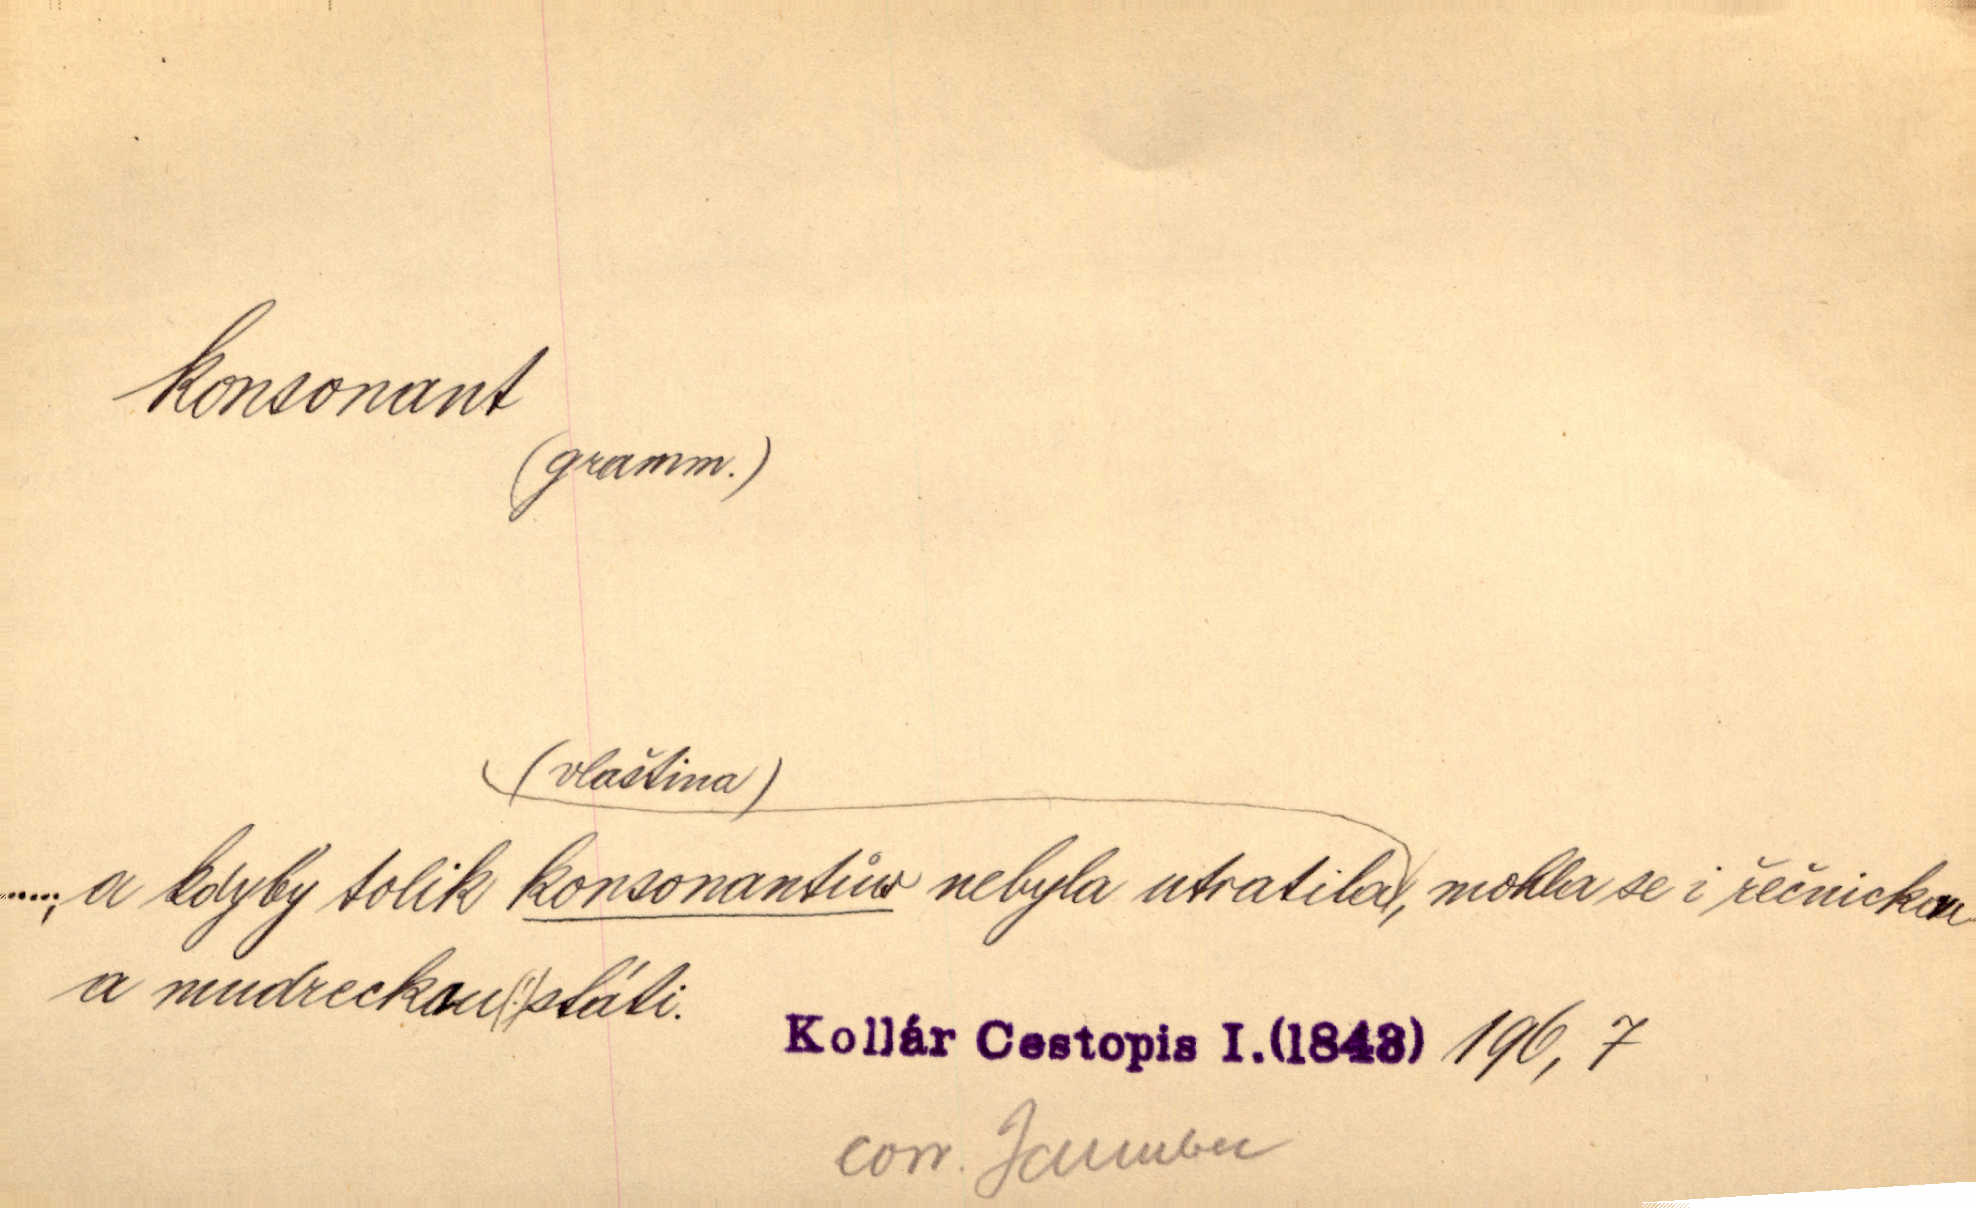 konsonant
(gramm.)
(vlaština)
....., a kdyby tolik konsonantůw nebyla utratila, mohla se i řečnickau
a mudreckau (!) státi.
Kollár Cestopis I.(1843) 196, 7
corr.